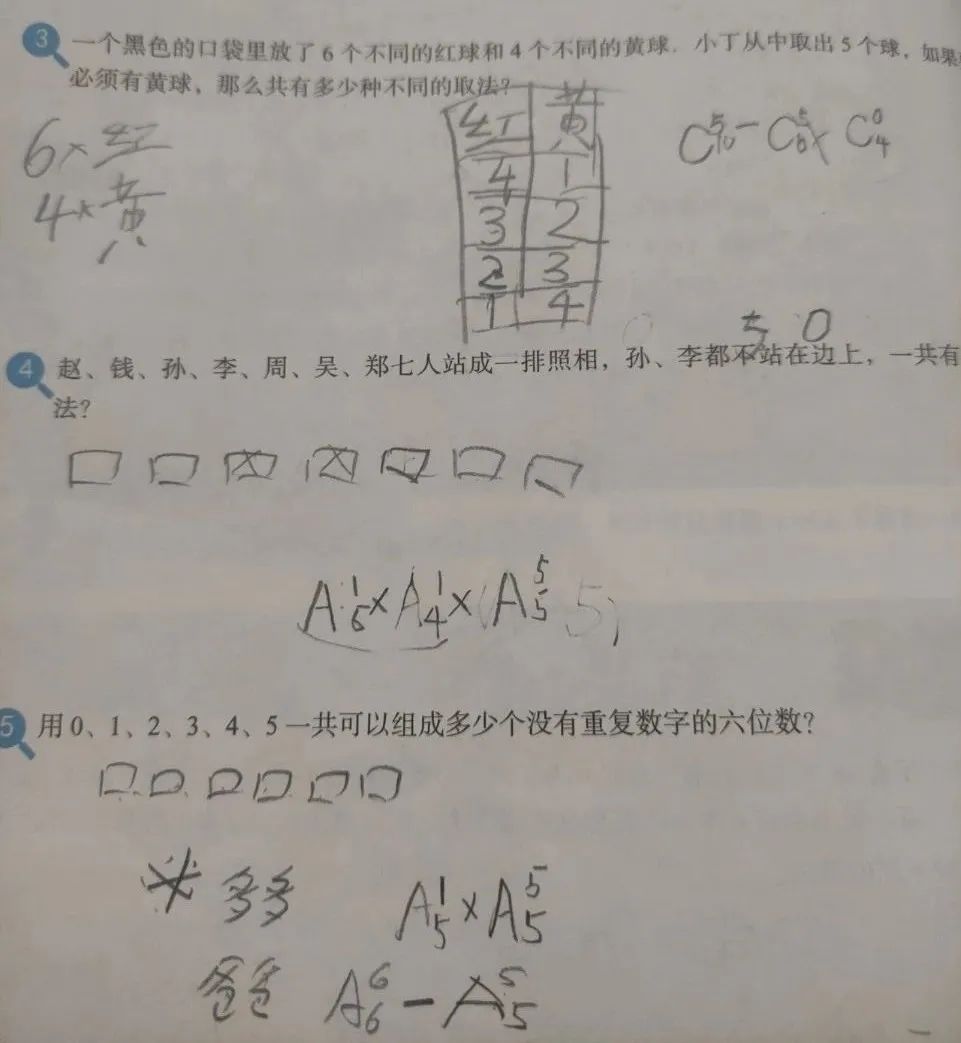 3 一个黑色的口袋里放了6个不同的红球和4个不同的黄球.小丁从中取出5个球,如果
必须有黄球,那么共有多少种不同的取法?
6×红
4×黄
红 黄
4 1
3 2
2 3
1 4
C⁵₁₀-C⁵₆×C⁰₄
5 0
4 赵、钱、孙、李、周、吴、郑七人站成一排照相,孙、李都不站在边上,一共有
法?
A¹₅×A¹₄×(A⁵₅
5 用0、1、2、3、4、5一共可以组成多少个没有重复数字的六位数?
多多 A¹₅×A⁵₅
爸爸 A⁶₆-A⁵₅